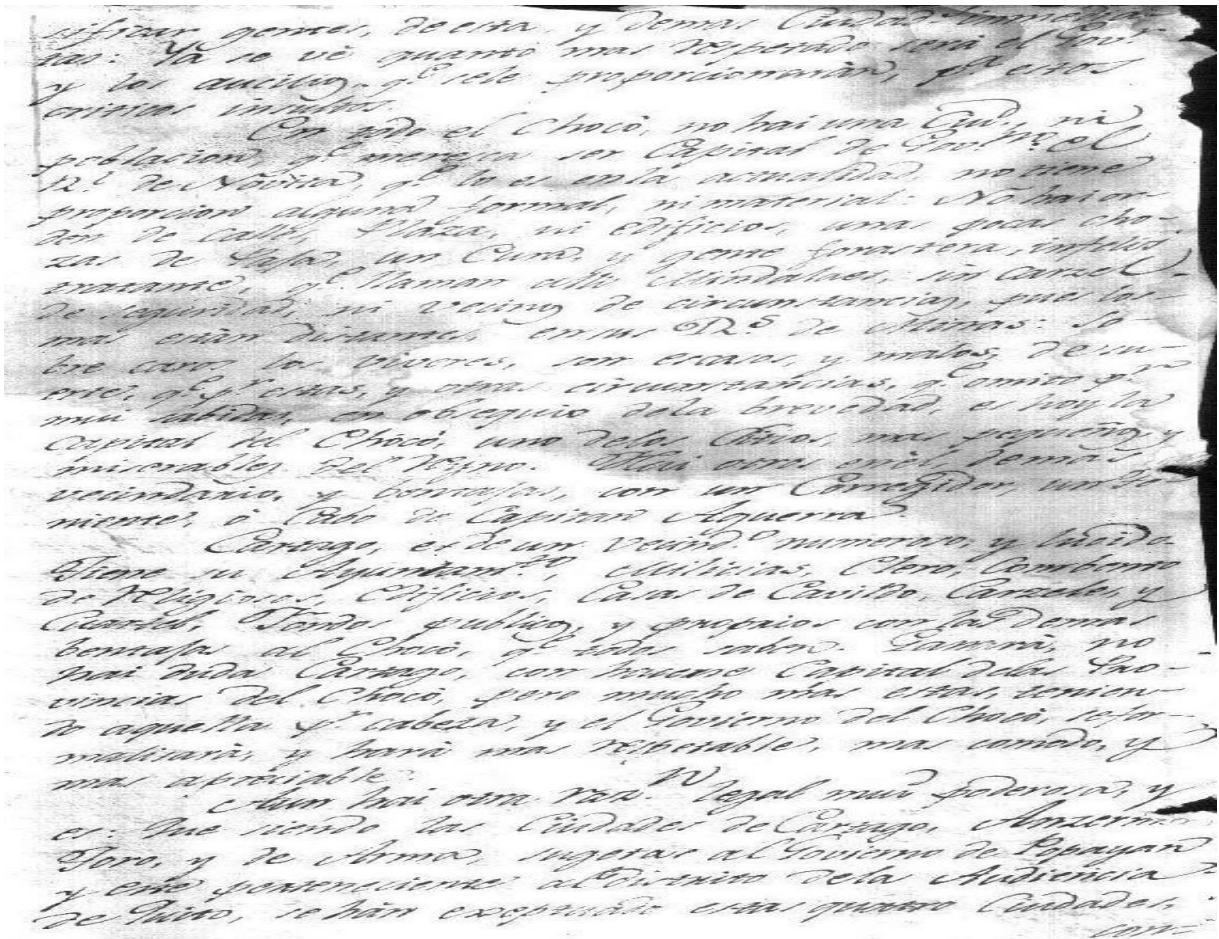 gentes, de esta, y demas Ciudad
tas: Ya se vé quanto mas respetado será el
y los aucilios q.e sele proporcionaran, p.a estos
criticos insultos.
En todo el Chocó, no hai una Ciud, ni
poblacion, q.e meresca ser Capital de Gov.no el
R.l de Novita, q.e lo es en la actualidad, no tiene
proporcion alguna formal, ni material: No hai or-
den de calles, Plaza, ni edificios, unas pocas cho-
zas de Paja, un Cura, y gente forastera,
tratante, q.e llaman alli sin carzel
de seguridad, ni vecinos de circunstancias, pues los
mas están distantes, en sus R.s de Minas: So-
bre caro, los viveres, son escasos, y malos, de su-
erte, q.e p.r estas, y otras circunstancias, q.e omito p.r
mui sabidas, en obsequio dela brevedad, es hoy la
Capital del Chocó, uno delos Citios mas pequeños y
miserables del Reyno. Hai otros en el, de mas
vecindario, y bentajas, con un Corregidor, un The-
niente, ó Cabo de Capitan Aguerra.
Cartago, es de un vecind.o numeroso, y lucido
Tiene su Ayuntam.to, Milicias, Clero, Combento
de Religiosos, Edificios, Casas de Cavildo, Carzeles, y
Quartel, Fondos publicos, y proprios con las demas
bentajas al Chocó, q.e todos saben. Ganará, no
hai duda Cartago, con hacerse Capital delas Pro-
vincias del Chocó, pero mucho mas estas, tenien-
do aquella p.r cabeza, y el Govierno del Chocó, se for-
malisará, y hará mas respetable, mas comodo, y
mas apreciable.
Aun hai otra raz.n legal mui poderosa, y
es: Que siendo las Ciudades de Cartago, Anzerma
Toro, y de Arma, sugetas al Govierno de Popayan
y este perteneciente al distrito dela Audiencia
de Quito, se hán exeptuado estas quatro Ciudades,
con-